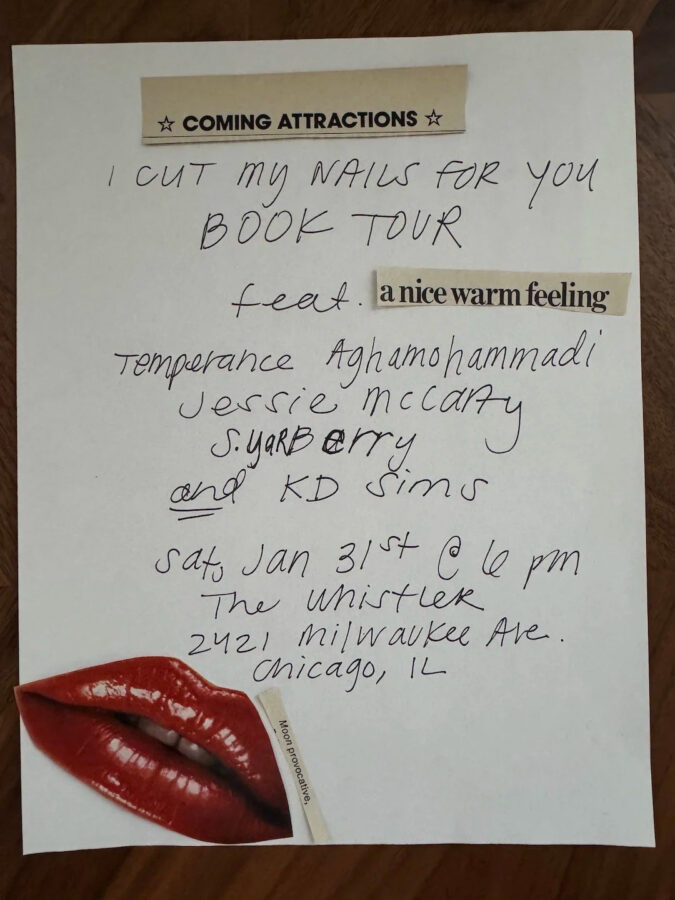 ☆ COMING ATTRACTIONS ☆
I CUT MY NAILS FOR YOU
BOOK TOUR
feat. a nice warm feeling
Temperance Aghamohammadi
Jessie McCarty
S. YARBerry
and KD Sims
Sat, Jan 31st @ 6 pm
The Whistler
2421 Milwaukee Ave.
Chicago, IL
Moon provocative,